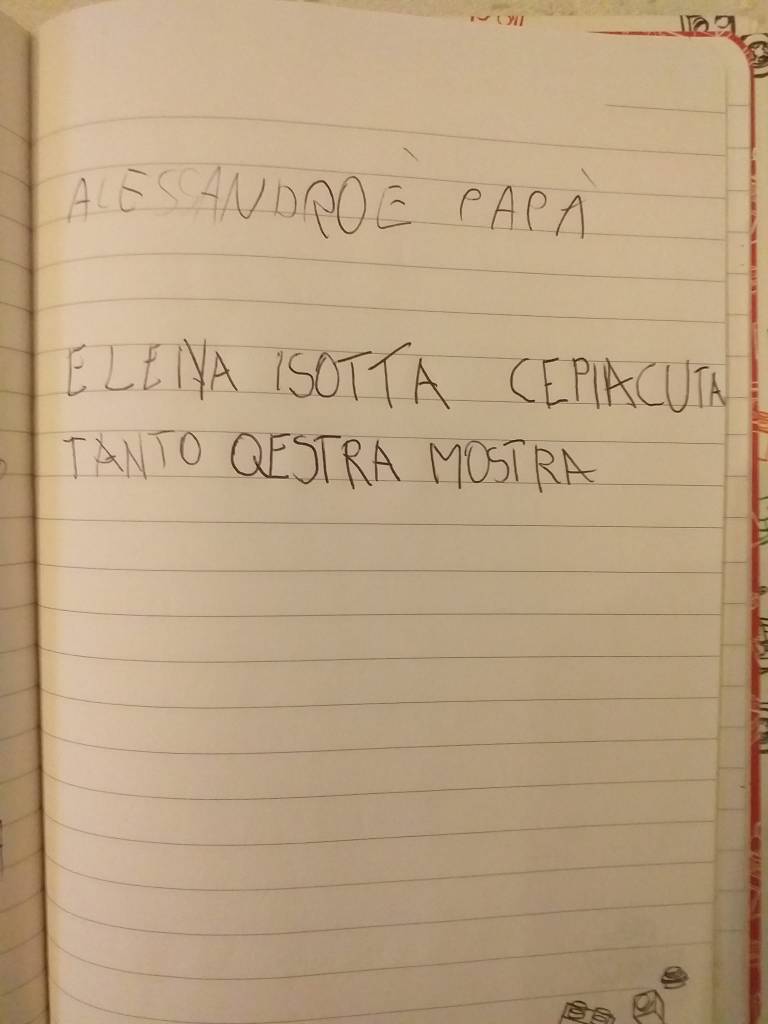 ALESSANDROÈ PAPÀ
ELENA ISOTTA CEPIACUTA
TANTO QESTRA MOSTRA